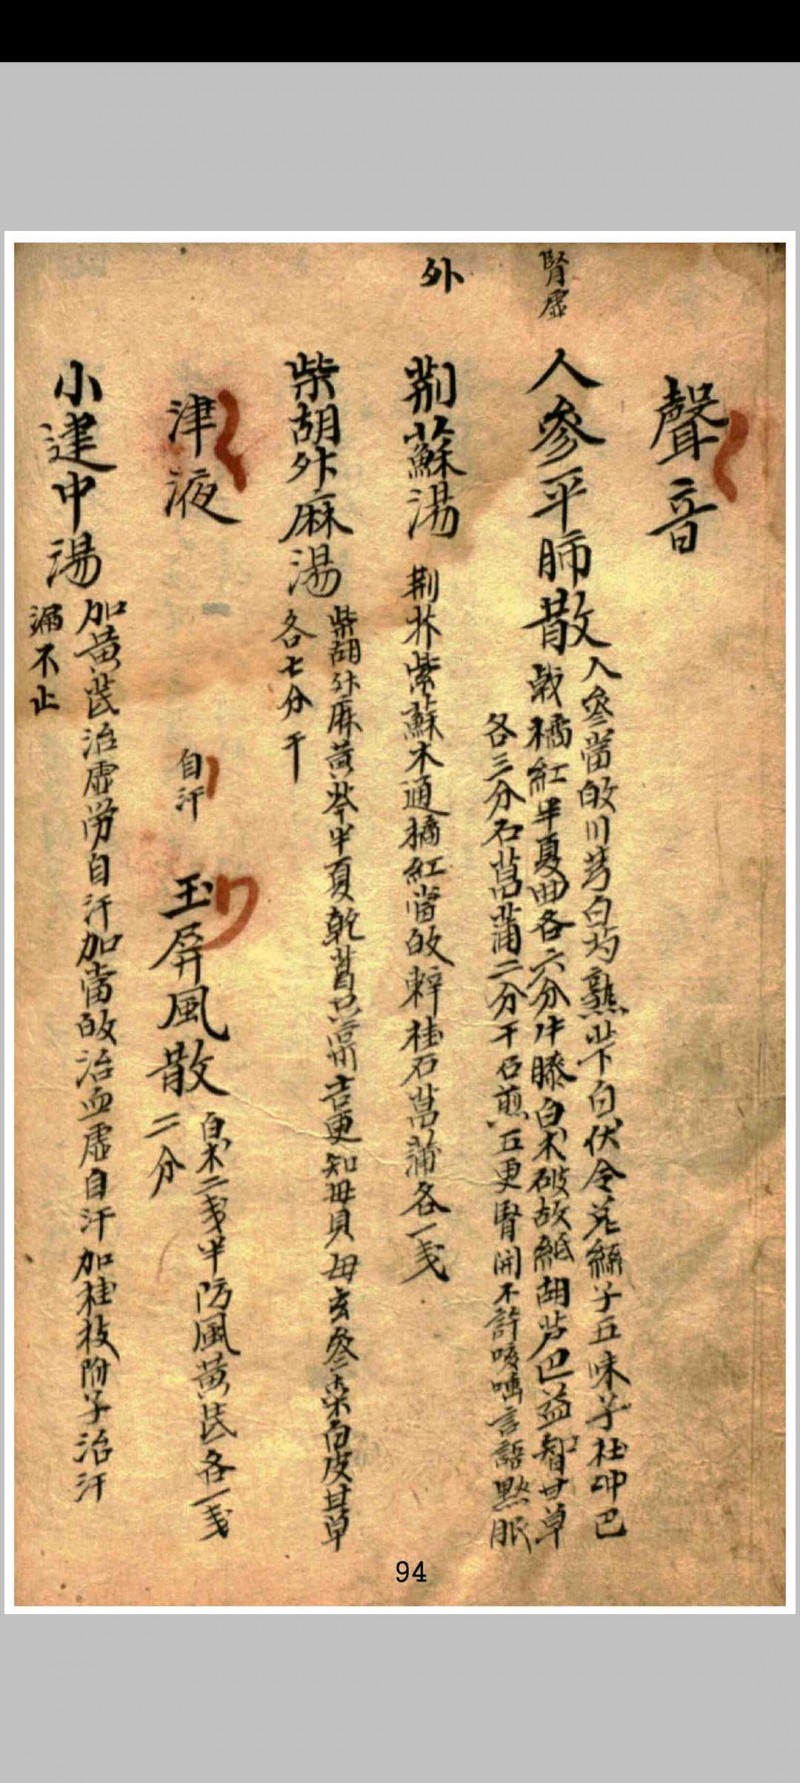 聲音
腎虛
人參平肺散
人參當皈川芎白芍熟芐白伏令兎絲子五味子杜冲巴
戟橘紅半夏曲各六分牛膝白朮破故紙胡芦巴益智甘草
各三分石菖蒲二分干召煎五更腎開不許咳唾言語黙服
外
荊蘇湯
荆芥紫蘇木通橘紅當皈辣桂石菖蒲各一戔
柴胡升麻湯
柴胡升麻黃芩半夏乾葛川吉更知母貝母玄參桑白皮甘草
各七分干
津液
自汗
玉屏風散
白朮二戔半防風黃芪各一戔
二分
小建中湯
加黃芪治虛勞自汗加當皈治血虛自汗加桂枝附子治汗
漏不止
94